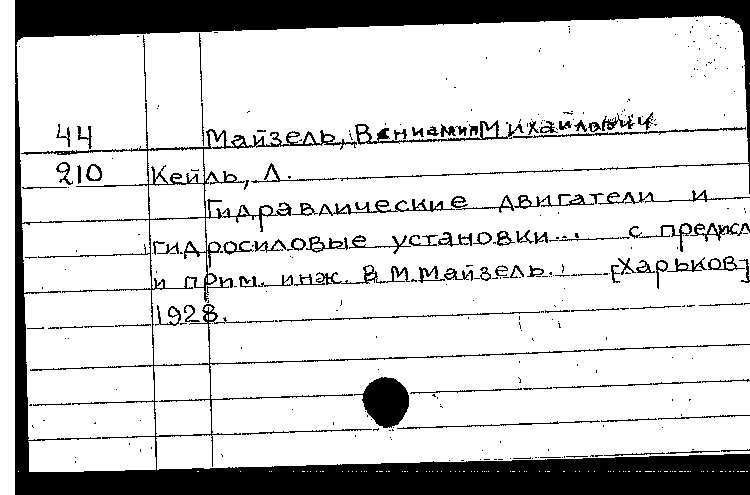 44 Майзель, Вениамин Михайлович
210 Кейль, Л.
Гидравлические двигатели и
гидросиловые установки... с предисл
и прим. инж. В.М.Майзель. [Харьков]
1928.